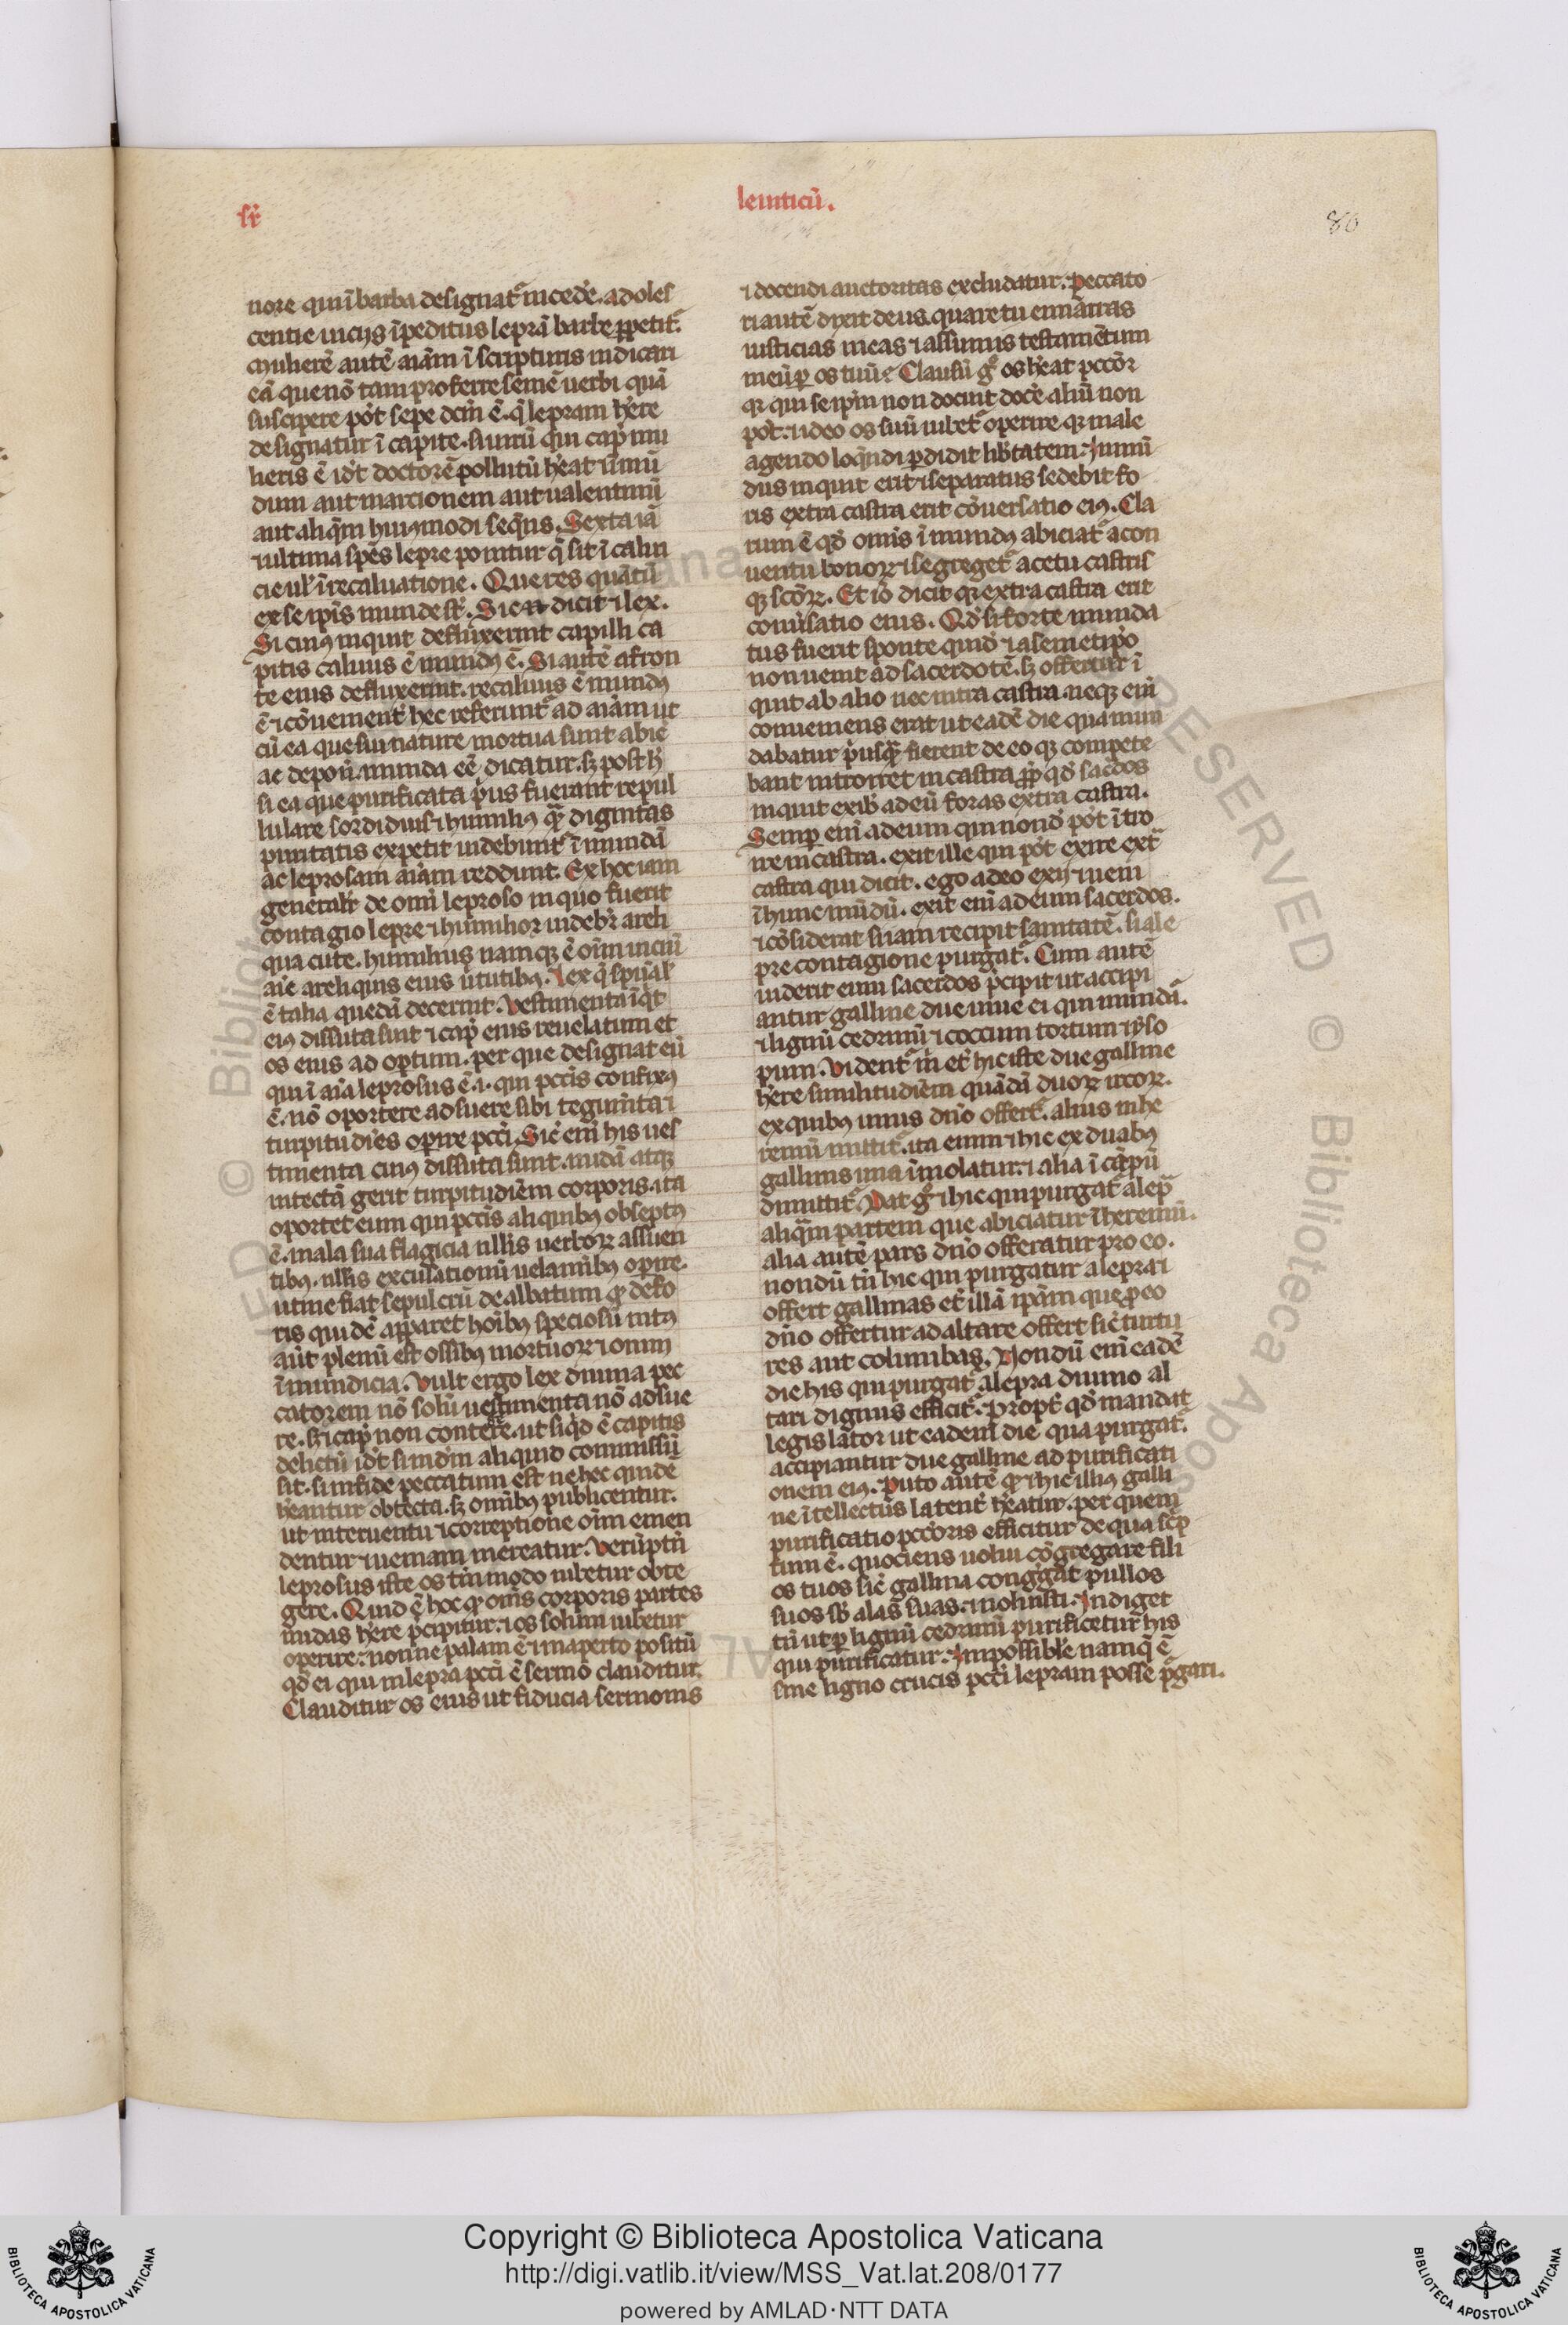 sr̄
leuiticū.
80
nore qui ī barba designat᷑ incedē. adoles
centie uicijs īpeditus leprā barbe ꝑpetit᷑.
Mulierē autē aīam ī scripturis indicari
eā que nō tam proferre semē uerbi quā
suscipere pōt sepe dcm̄ ē. q̄ lepram hēre
designatur ī capite. si uirū qui capd mu
lieris ē idt doctorē pollutū hēat īmū
dum aut marcionem aut ualentinū
aut aliqm̄ huiꝰmodi seqn̄s. Sexta iā
⁊ ultima spēs lepre ponitur q̄ sit ī calui
cie ul̓ ī recaluatione. Que res quātū
ex se ip̄is munde st̄. Sic n̄ dicit ⁊ lex.
Si cuiꝰ inquit defluxerint capilli ca
pitis caluus ē mundꝰ ē. Si autē a fron
te eius defluxerint. recaluus ē mundꝰ
ē ⁊ cōuenient̄ hec referunt᷑ ad aīam ut
cū ea que sui nature mortua sunt abie
ac deponit. munda eē dicatur. sꝫ post h̄
si ea que purificata p̄us fuerant repul
lulare sordidius ⁊ humiliꝰ qͣꝫ dignitas
puritatis expetit uidebunt᷑ īmundā
ac leprosam aīam reddunt. Ex hoc iam
general̓r de om̄i leproso in quo fuerit
contagio lepre ⁊ humilior uidebit̄ areli
qua cute. humilius namqꝫ ē oīm uiciū
aīe areliquis eius uirtutibꝰ. Lex q̄ spūal̓
ē talia quedā decernit. Vestimenta īqt
eiꝰ dissuta sint ⁊ capd eius reuelatum et
os eius ad optum. per que designat eū
qui ī aīa leprosus ē .i. qui pccīs confixꝰ
ē. nō oportere adsuere sibi tegumīta ⁊
turpitudies opire pcci. Sic̄ enī his ues
timenta cuiꝰ dissuta sunt. nudā atqꝫ
intectā gerit turpitudiem corporis. ita
oportet eum qui pccīs aliquibꝰ obseptꝰ
ē. mala sua flagicia ullis uerborꝝ assuen
tibꝰ. ullis excusationū uelaminibꝰ opire.
ut ne fiat sepulcrū dealbatum qd defo
ris quidē apparet hoībꝰ speciosū intꝰ
aūt plenū est ossibꝰ mortuorꝝ ⁊ omni
īmundicia. Vult ergo lex diuina pec
catorem nō solū uestimenta nō adsue
re. sꝫ ⁊ capd non contegere. ut siqd ē capitis
delictū idt si in dm̄ aliquid commissū
sit. si in fide peccatum est ne hec quidē
hēantur obtecta. sꝫ om̄ibꝰ publicentur.
ut interuentu ⁊ correptione oīm emen
dentur ⁊ ueniam mereatur. Verūptn̄
leprosus iste os tm̄modo iubetur obte
gere. Quid ē hoc qd om̄s corporis partes
nudas hēre p̄cipitur. ⁊ os solum iubetur
operire. nonne palam ē ⁊ in aperto positū
qd ei qui in lepra pcci ē sermo clauditur.
Clauditur os eius ut fiducia sermonis
⁊ docendi auctoritas excludatur. Peccato
ri autē dixit deus. quare tu ennarras
iusticias meas ⁊ assumis testamētum
meū ꝑ os tuū⹎ Clausū gͦ os hēat pccōr
qꝛ qui se ip̄m non docuit docē aliū non
pōt. ⁊ ideo os suū iubet᷑ operire qꝛ male
agendo loqndi ꝑdidit lib̄tatem. Inmū
dus inquit erit ⁊ separatus sedebit fo
ris extra castra erit cōuersatio eiꝰ. Cla
rum ē qd omīs īmundꝰ abiciat᷑ a con
uentu bonorꝝ ⁊ segreget᷑ a cetu castris
qꝫ scōrꝝ. Et iō dicit qꝛ extra castra erit
conuīsatio eius. Qd si forte munda
tus fuerit sponte quid ⁊ a semetip̄o
non uenit ad sacerdotē. sꝫ offertur ī
quit ab alio nec intra castra. neqꝫ enī
conueniens erat ut eadē die qua mun
dabatur p̄usqͣꝫ fierent de eo qꝫ compete
bant introiret in castra ꝓp qd sacdos
inquit exibit ad eū foras extra castra.
Semꝑ enī ad eum qui nond pōt ītro
ire in castra. exit ille qui pōt exire extͣ
castra qui dicit. ego a deo exij ⁊ ueni
ī hunc mūdū. exit enī ad eum sacerdos.
⁊ cōsiderat si iam recipit sanitatē. si a le
pre contagione purgat᷑. Cum autē
uiderit eum sacerdos p̄cipit ut accipi
antur galline due uiue ei qui mundat᷑.
⁊ lignū cedrinū ⁊ coccum tortum ⁊ yso
pum. Vident᷑ m̄ et hic iste due galline
hēre similitudiem quādā duorꝝ ircorꝝ.
ex quibꝰ unus dn̄o offert᷑. alius in he
remū mittit᷑. ita enim ⁊ hic ex duabꝰ
gallinis una īmolatur. ⁊ alia ī cāpū
dimittit᷑. Dat gͦ ⁊ hic qui purgat᷑ a lepͣ
aliqm̄ partem que abiciatur ī heremū.
alia autē pars dn̄o offeratur pro eo.
nondū tn̄ hic qui purgatur a lepra ⁊
offert gallinas et illā ip̄am que ꝓ eo
dn̄o offertur ad altare offert sic̄ turtu
res aut columbas. Nondū enī eadē
die his qui purgat᷑ a lepra diuino al
tari dignus efficit᷑. Propt̄ qd mandat
legislator ut eadem die qua purgat᷑
accipiantur due galline ad purificati
onem eiꝰ. Puto autē qd ⁊ hic illiꝰ galli
ne ītellectus latent̄ hēatur. per quem
purificatio pccōris efficitur de qua scp
tum ē. quociens uolui cōgregare fili
os tuos sic̄ gallina congͣgat pullos
suos sb̄ alas suas. ⁊ noluisti. Indiget
tn̄ ut ꝑ lignū cedrinū purificetur his
qui purificatur. Impossibl̓e namqꝫ ē
sine ligno crucis pcci lepram posse pͥgari.
Copyright © Biblioteca Apostolica Vaticana
http://digi.vatlib.it/view/MSS_Vat.lat.208/0177
powered by AMLAD·NTT DATA
BIBLIOTECA APOSTOLICA VATICANA
BIBLIOTECA APOSTOLICA VATICANA